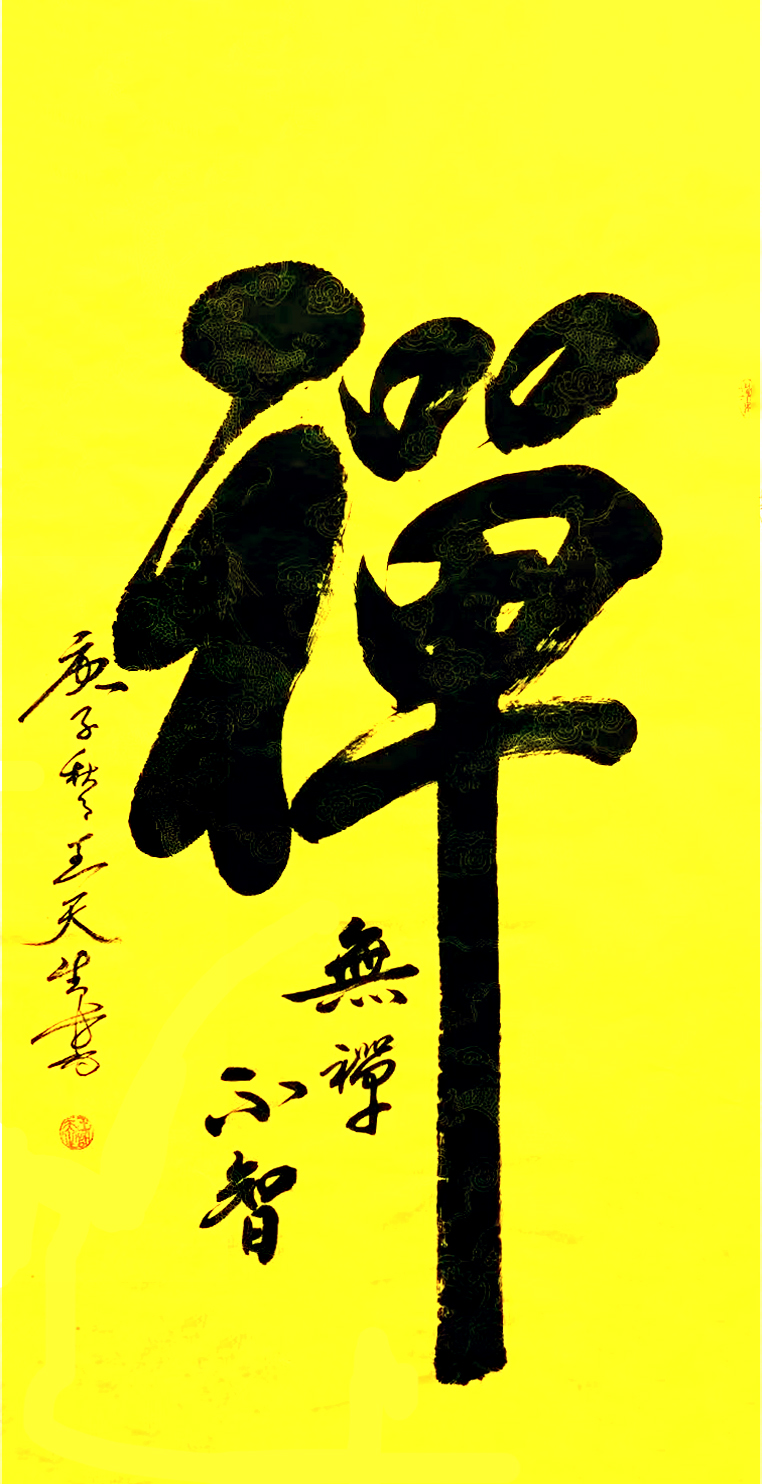 禪
無禪
不智
庚子秋月王天生書